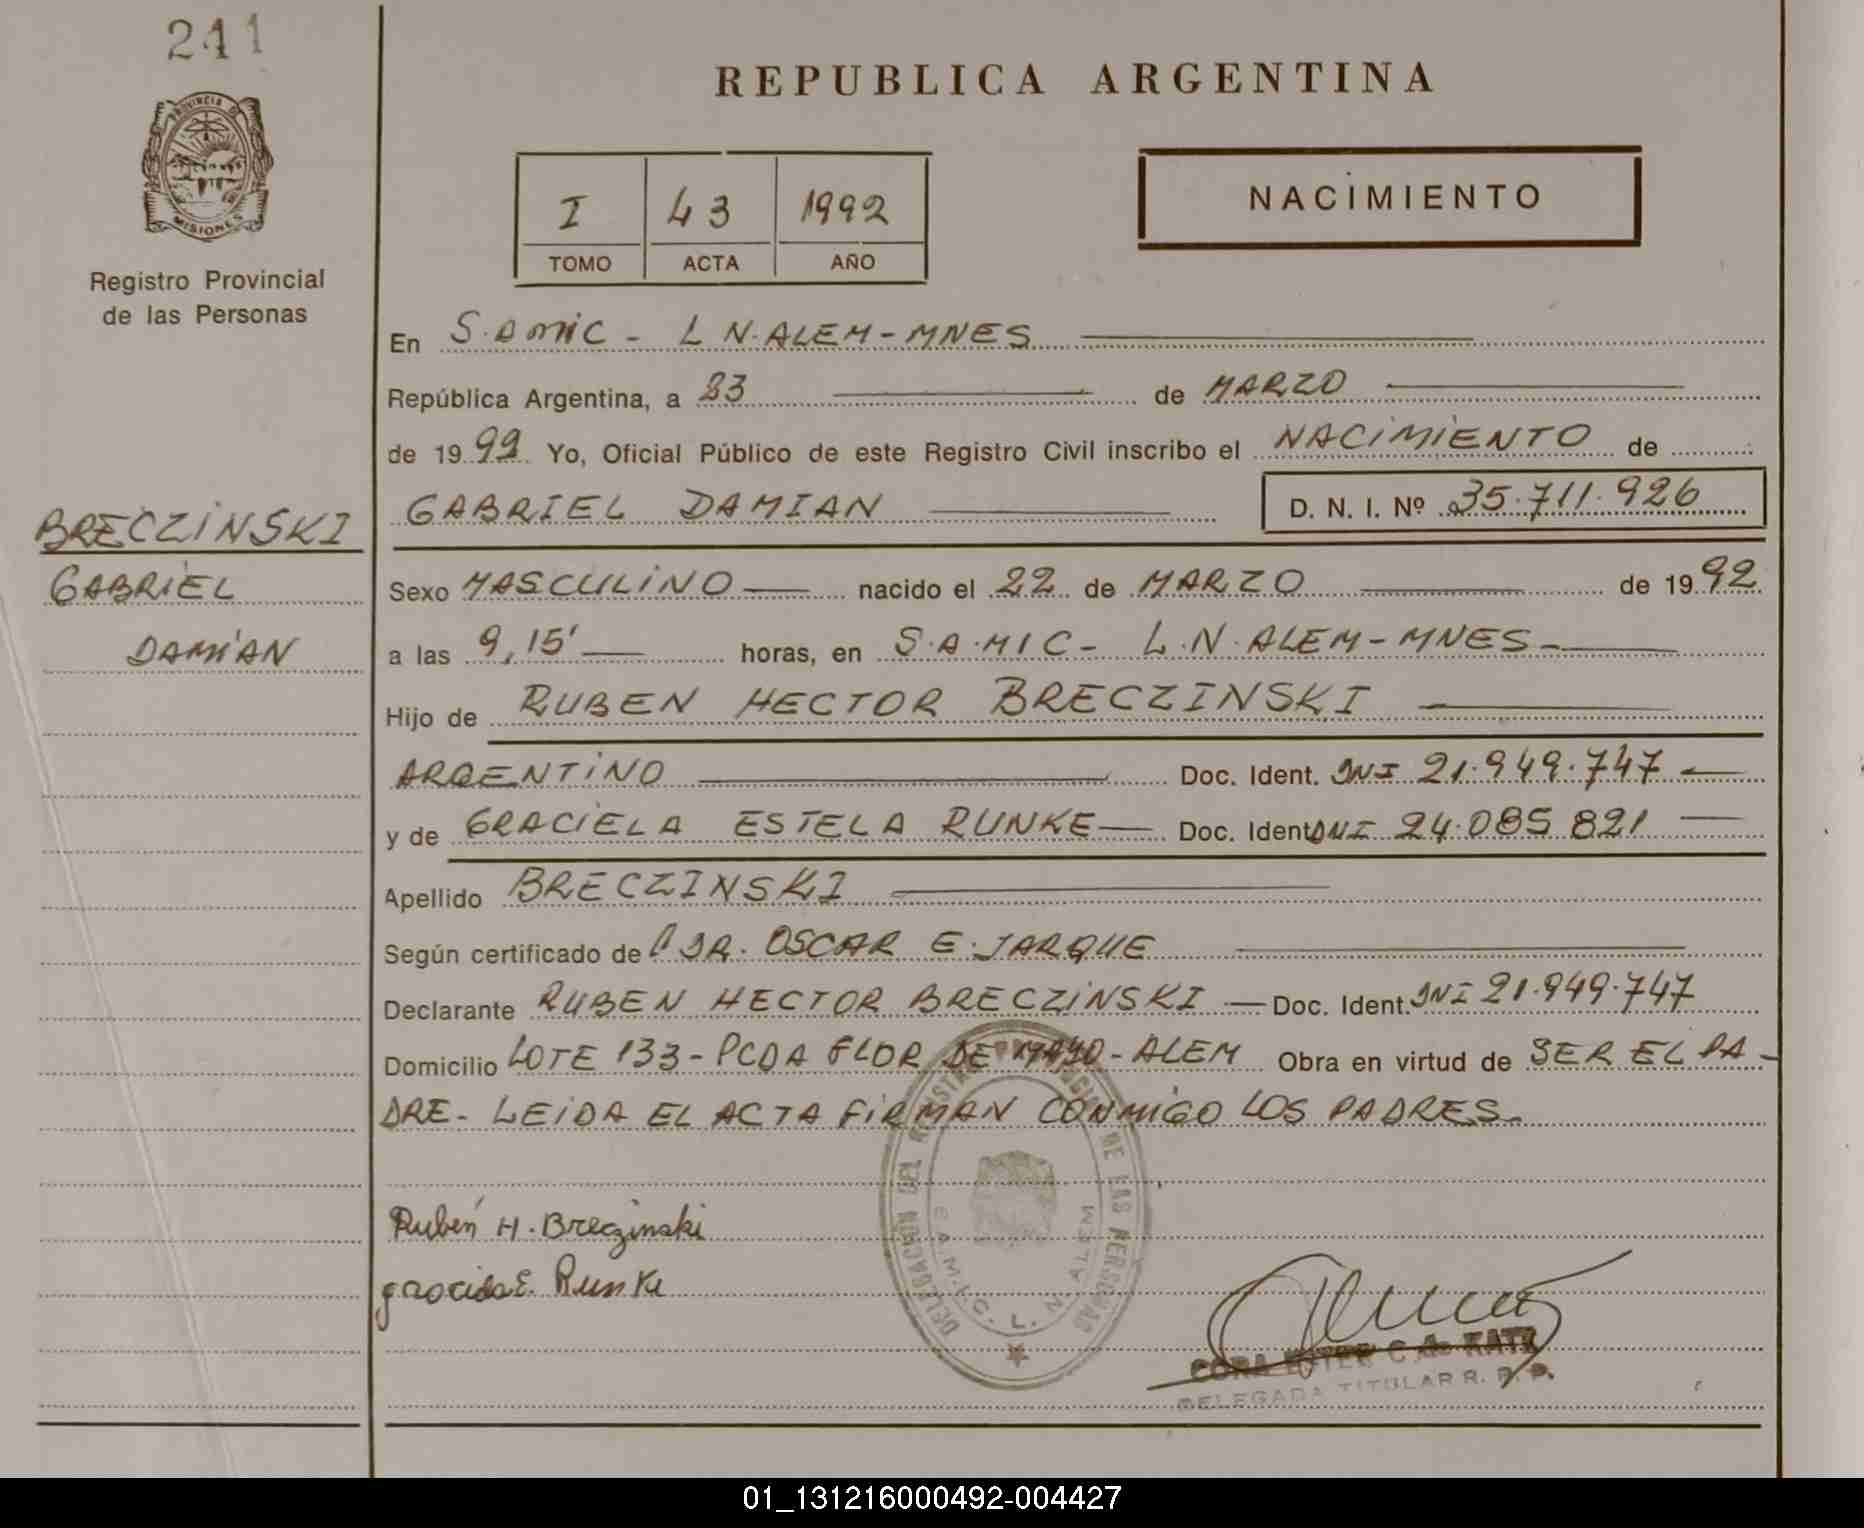 241
PROVINCIA DE
MISIONES
Registro Provincial
de las Personas
BRECZINSKI
GABRIEL
DAMIAN
REPUBLICA ARGENTINA
I 43 1992
TOMO ACTA AÑO
NACIMIENTO
En S.AMIC - L N.ALEM-MNES
República Argentina, a 23 de MARZO
de 1992 Yo, Oficial Público de este Registro Civil inscribo el NACIMIENTO de
GABRIEL DAMIAN D. N. I. Nº 35.711.926
Sexo MASCULINO nacido el 22 de MARZO de 1992
a las 9,15' horas, en S.A.MIC- L.N.ALEM-MNES-
Hijo de RUBEN HECTOR BRECZINSKI
ARGENTINO Doc. Ident. DNI 21.949.747
y de GRACIELA ESTELA RUNKE Doc. Ident. DNI 24.085 821
Apellido BRECZINSKI
Según certificado de DR. OSCAR E. JARQUE
Declarante RUBEN HECTOR BRECZINSKI Doc. Ident. DNI 21.949.747
Domicilio LOTE 133-PCDA FLOR DE MAYO-ALEM Obra en virtud de SER EL PA-
DRE- LEIDA EL ACTA FIRMAN CONMIGO LOS PADRES-
Rubén H. Breczinski
graciela E. Runke
DELEGACION DEL REGISTRO PROVINCIAL DE LAS PERSONAS
S.A.M.I.C. L. N. ALEM
CORA ESTER C. de KATZ
DELEGADA TITULAR R. P. P.
01_131216000492-004427